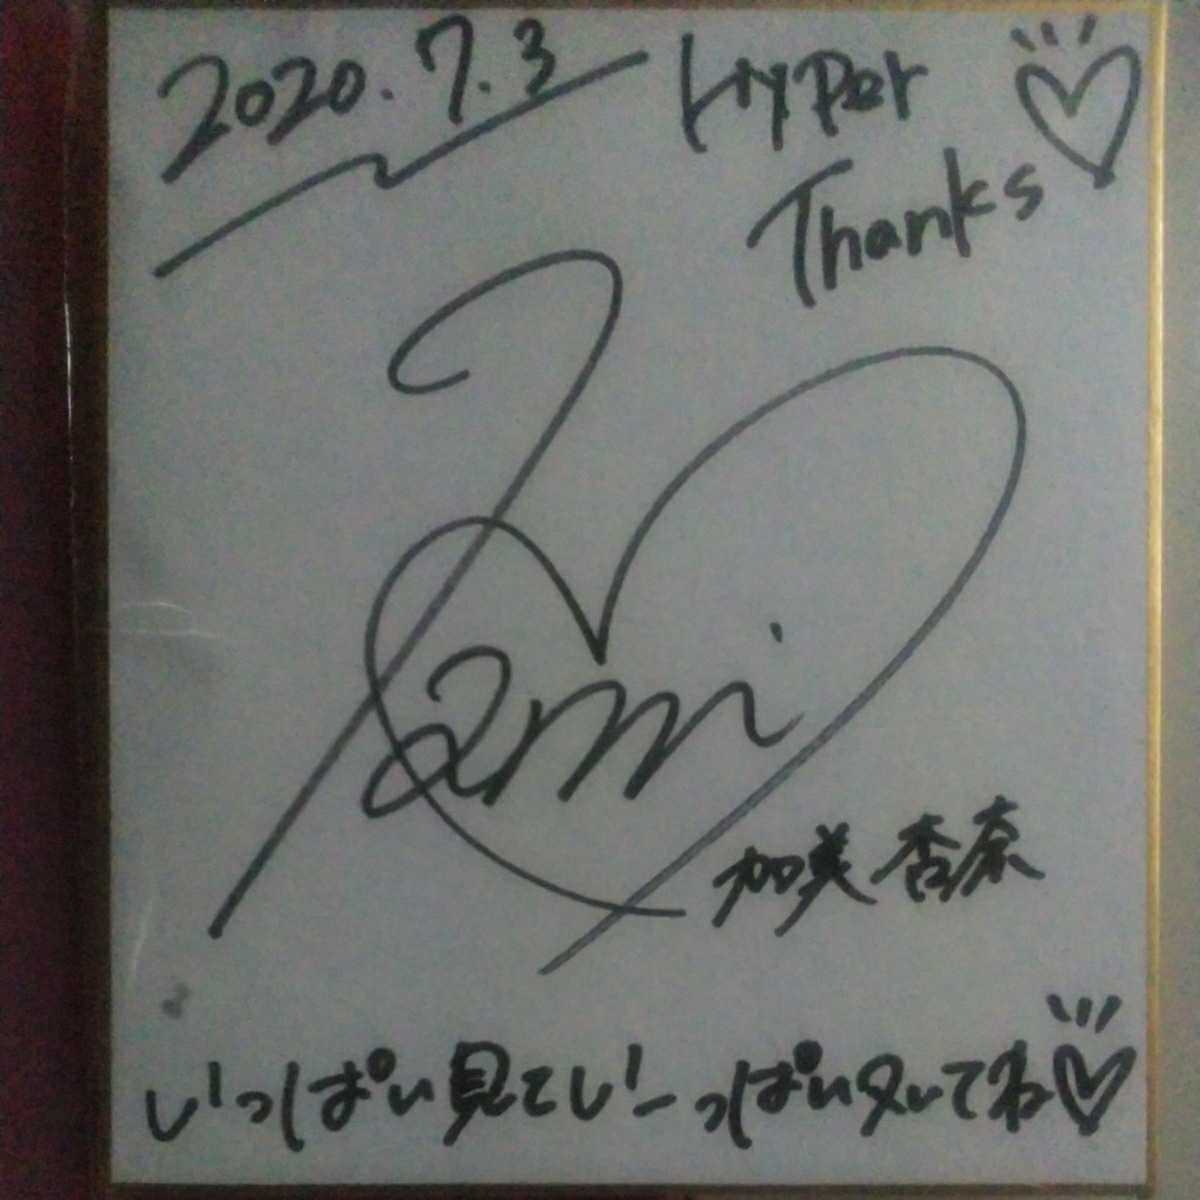 2020.7.3
Hyper
Thanks
Kami
加美杏奈
いっぱい見ていーっぱいヌいてね